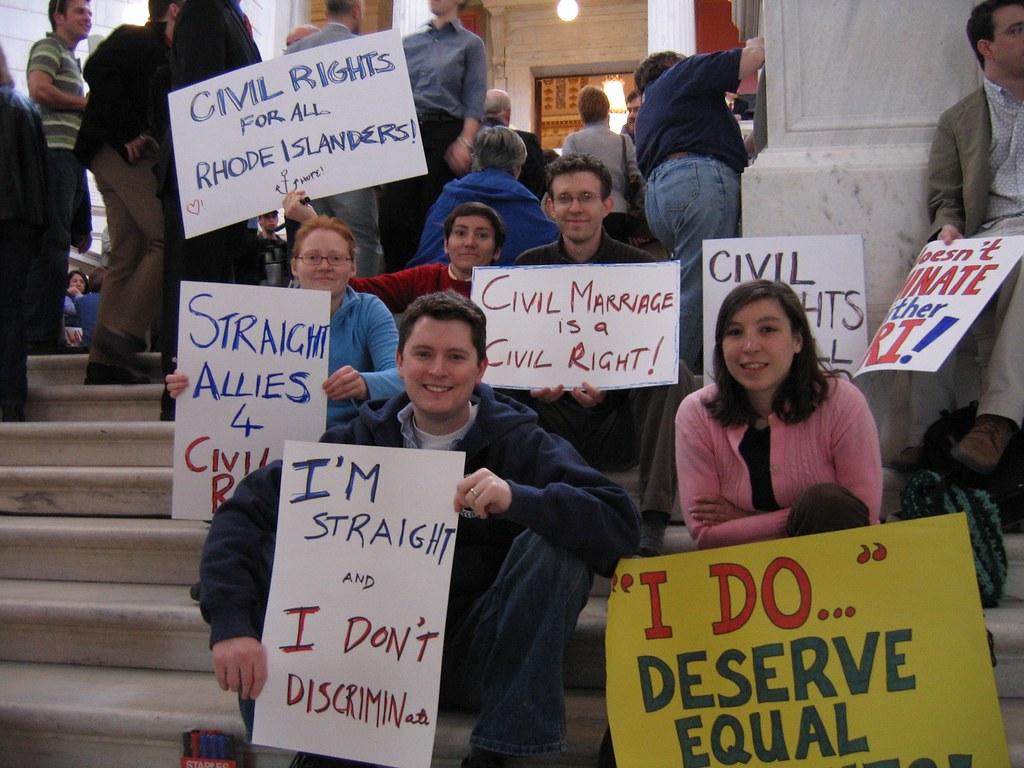 CIVIL RIGHTS
FOR ALL
RHODE ISLANDERS!
STRAIGHT
ALLIES
4
CIVIL
R
CIVIL MARRIAGE
is a
CIVIL RIGHT!
CIVIL
HTS
L
oesn't
INATE
ther
RI!
I'M
STRAIGHT
AND
I DON'T
DISCRIMINate
"I DO... "
DESERVE
EQUAL
STAPLES